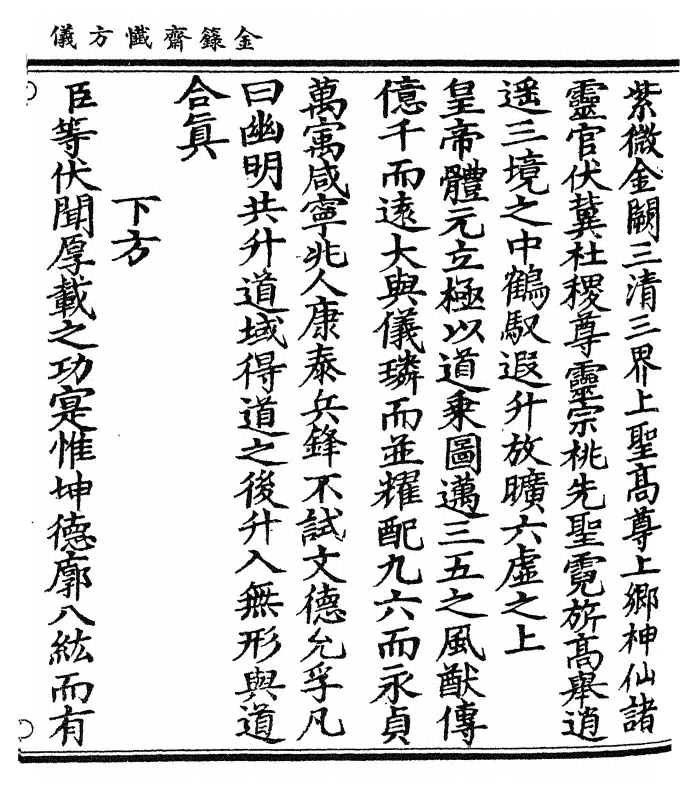 金籙齋懺方儀
紫微金闕三清三界上聖高尊上鄉神仙諸
靈官伏冀社稷尊靈宗桃先聖霓旂高舉逍
遥三境之中鶴馭遐升放曠六虛之上
皇帝體元立極以道乘圖邁三五之風猷傳
億千而遠大與儀璘而並耀配九六而永貞
萬㝢咸寧兆人康泰兵鋒不試文德允孚凡
曰幽明共升道域得道之後升入無形與道
合真
下方
臣等伏聞厚載之功寔惟坤德廓八紘而有